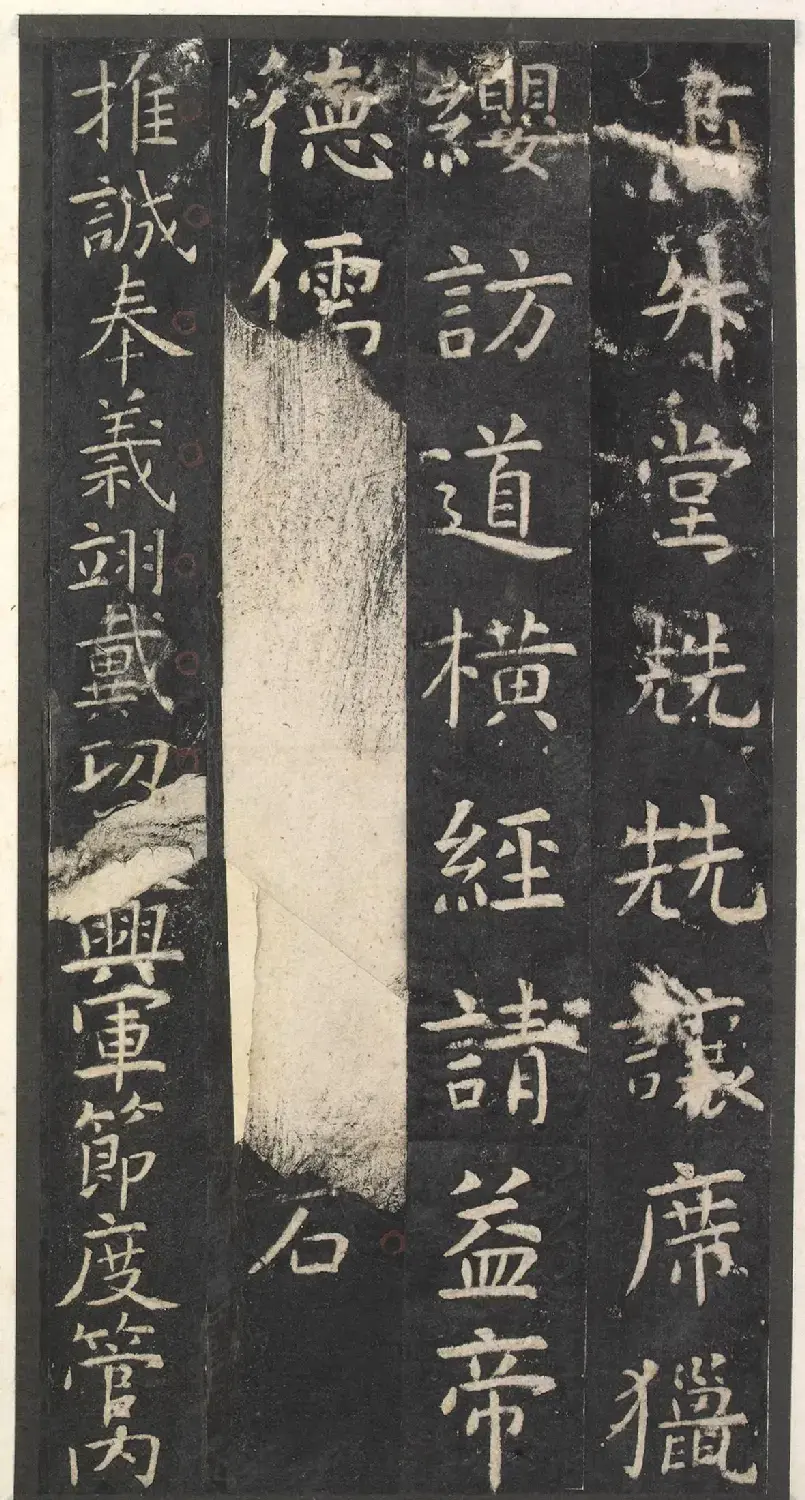 升堂兟兟讓席獵
纓訪道橫經請益帝
德儒石
推誠奉義翊戴功興軍節度管內